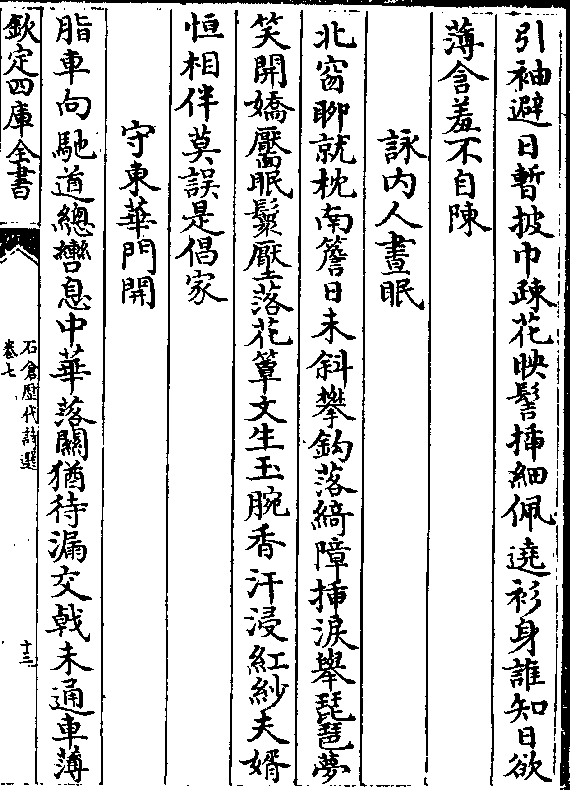 引袖避日暫披巾疎花映髻揷細佩遶衫身誰知日欲
薄含羞不自陳
詠内人晝眠
北窗聊就枕南簷日未斜攀鈎落綺障揷淚舉琵琶夢
笑開嬌靨眠鬟壓落花簟文生玉腕香汗浸紅紗夫婿
恒相伴莫誤是倡家
守東華門開
脂車向馳道總轡息中華落關猶待漏交戟未通車薄
欽定四庫全書
石倉歷代詩選
卷七
十三